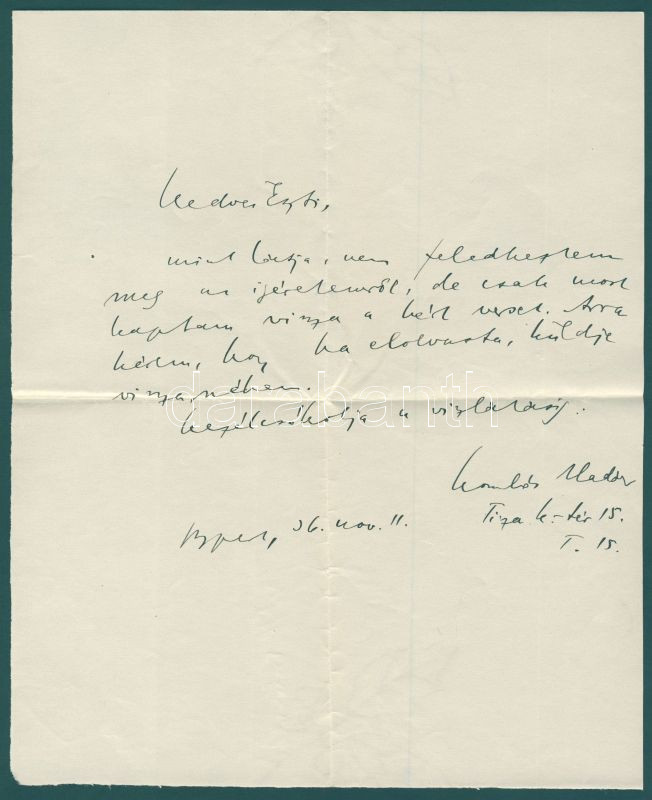 Kedves Eszti,
mint látja, nem feledkeztem
meg az igéretemről, de csak most
kaptam vissza a kért verset. Arra
kérem, hogy ha elolvasta, küldje
vissza nékem.
kezétcsókolja a viszlátásig:
Komlós Aladár
Tisza K.-tér 15.
I. 15.
Bpest, 36. nov. 11.
darabanth